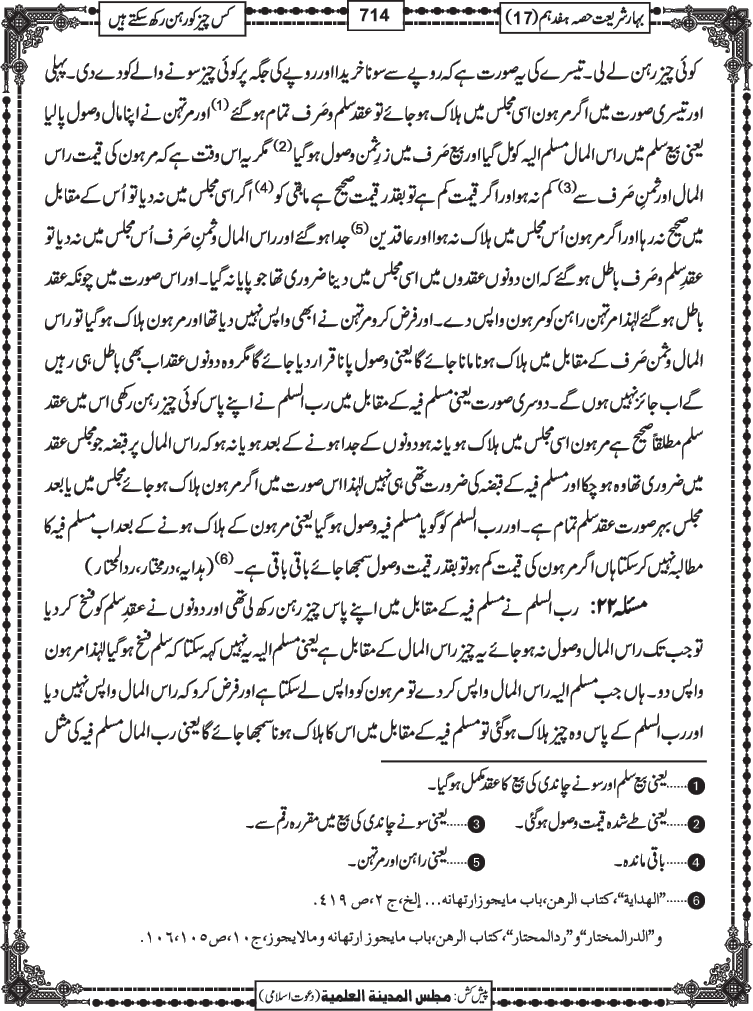 بہارِ شریعت حصہ ہفدہم (17)
714
کس چیز کو رہن رکھ سکتے ہیں
کوئی چیز رہن لے لی۔ تیسرے کی یہ صورت ہے کہ روپے سے سونا خریدا اور روپے کی جگہ پر کوئی چیز سونے والے کو دے دی۔ پہلی
اور تیسری صورت میں اگر مرہون اسی مجلس میں ہلاک ہو جائے تو عقدِ سلم و صَرف تمام ہو گئے (1) اور مرتہن نے اپنا مال وصول پا لیا
یعنی بیع سلم میں راس المال مسلم الیہ کو مل گیا اور بیع صَرف میں زرِ ثمن وصول ہو گیا (2) مگر یہ اس وقت ہے کہ مرہون کی قیمت راس
المال اور ثمنِ صَرف سے (3) کم نہ ہو اور اگر قیمت کم ہے تو بقدر قیمت صحیح ہے مابقی کو (4) اگر اسی مجلس میں نہ دیا تو اُس کے مقابل
میں صحیح نہ رہا اور اگر مرہون اُس مجلس میں ہلاک نہ ہوا اور عاقدین (5) جدا ہو گئے اور راس المال و ثمنِ صَرف اُس مجلس میں نہ دیا تو
عقدِ سلم و صَرف باطل ہو گئے کہ ان دونوں عقدوں میں اسی مجلس میں دینا ضروری تھا جو پایا نہ گیا۔ اور اس صورت میں چونکہ عقد
باطل ہو گئے لہٰذا مرتہن راہن کو مرہون واپس دے۔ اور فرض کرو مرتہن نے ابھی واپس نہیں دیا تھا اور مرہون ہلاک ہو گیا تو راس
المال و ثمن صَرف کے مقابل میں ہلاک ہونا مانا جائے گا یعنی وصول پانا قرار دیا جائے گا مگر وہ دونوں عقد اب بھی باطل ہی رہیں
گے اب جائز نہیں ہوں گے۔ دوسری صورت یعنی مسلم فیہ کے مقابل میں رب السلم نے اپنے پاس کوئی چیز رہن رکھی اس میں عقد
سلم مطلقاً صحیح ہے مرہون اسی مجلس میں ہلاک ہو یا نہ ہو دونوں کے جدا ہونے کے بعد ہو یا نہ ہو کہ راس المال پر قبضہ جو مجلس عقد
میں ضروری تھا وہ ہو چکا اور مسلم فیہ کے قبضہ کی ضرورت تھی ہی نہیں لہٰذا اس صورت میں اگر مرہون ہلاک ہو جائے مجلس میں یا بعد
مجلس بہر صورت عقد سلم تمام ہے۔ اور رب السلم کو گویا مسلم فیہ وصول ہو گیا یعنی مرہون کے ہلاک ہونے کے بعد اب مسلم فیہ کا
مطالبہ نہیں کر سکتا ہاں اگر مرہون کی قیمت کم ہو تو بقدر قیمت وصول سمجھا جائے باقی باقی ہے۔ (6) (ہدایہ، درمختار، ردالمحتار)
مسئلہ ۲۲: رب السلم نے مسلم فیہ کے مقابل میں اپنے پاس چیز رہن رکھ لی تھی اور دونوں نے عقدِ سلم کو فسخ کر دیا
تو جب تک راس المال وصول نہ ہو جائے یہ چیز راس المال کے مقابل ہے یعنی مسلم الیہ یہ نہیں کہہ سکتا کہ سلم فسخ ہو گیا لہٰذا مرہون
واپس دو۔ ہاں جب مسلم الیہ راس المال واپس کر دے تو مرہون کو واپس لے سکتا ہے اور فرض کرو کہ راس المال واپس نہیں دیا
اور رب السلم کے پاس وہ چیز ہلاک ہو گئی تو مسلم فیہ کے مقابل میں اس کا ہلاک ہونا سمجھا جائے گا یعنی رب المال مسلم فیہ کی مثل
1 ......یعنی بیع سلم اور سونے چاندی کی بیع کا عقد مکمل ہو گیا۔
2 ......یعنی طے شدہ قیمت وصول ہو گئی۔ 3 ......یعنی سونے چاندی کی بیع میں مقررہ رقم سے۔
4 ......باقی ماندہ۔ 5 ......یعنی راہن اور مرتہن۔
6 ......"الهداية"، كتاب الرهن، باب مايجوز ارتهانه... إلخ، ج ٢، ص ٤١٩.
و"الدرالمختار" و"ردالمحتار"، كتاب الرهن، باب مايجوز ارتهانه ومالايجوز، ج١٠، ص١٠٥، ١٠٦.
پیش کش: مجلس المدينة العلمية (دعوت اسلامی)